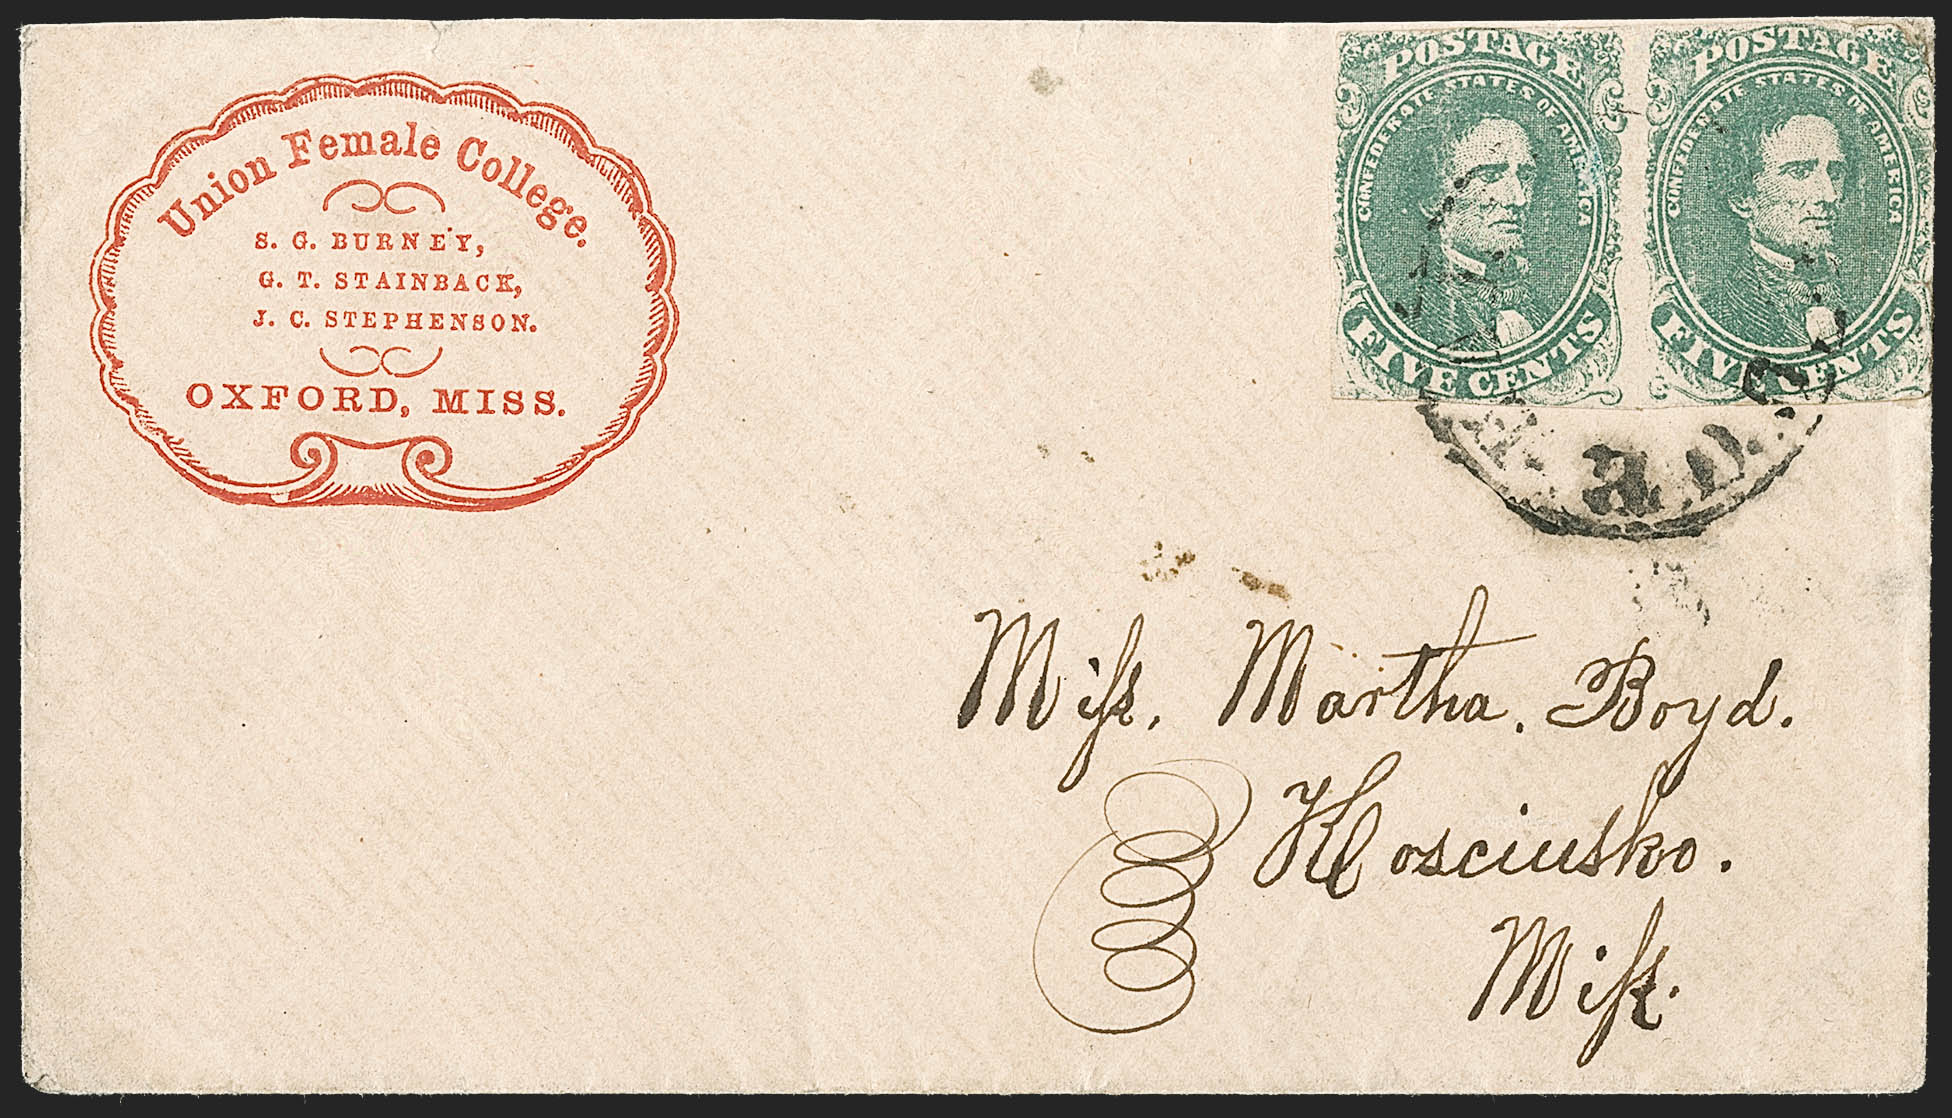 Union Female College.
S. G. BURNEY,
G. T. STAINBACK,
J. C. STEPHENSON.
OXFORD, MISS.
POSTAGE
CONFEDERATE STATES OF AMERICA
FIVE CENTS
POSTAGE
CONFEDERATE STATES OF AMERICA
FIVE CENTS
Miſs. Martha. Boyd.
Kosciusko.
Miſs.